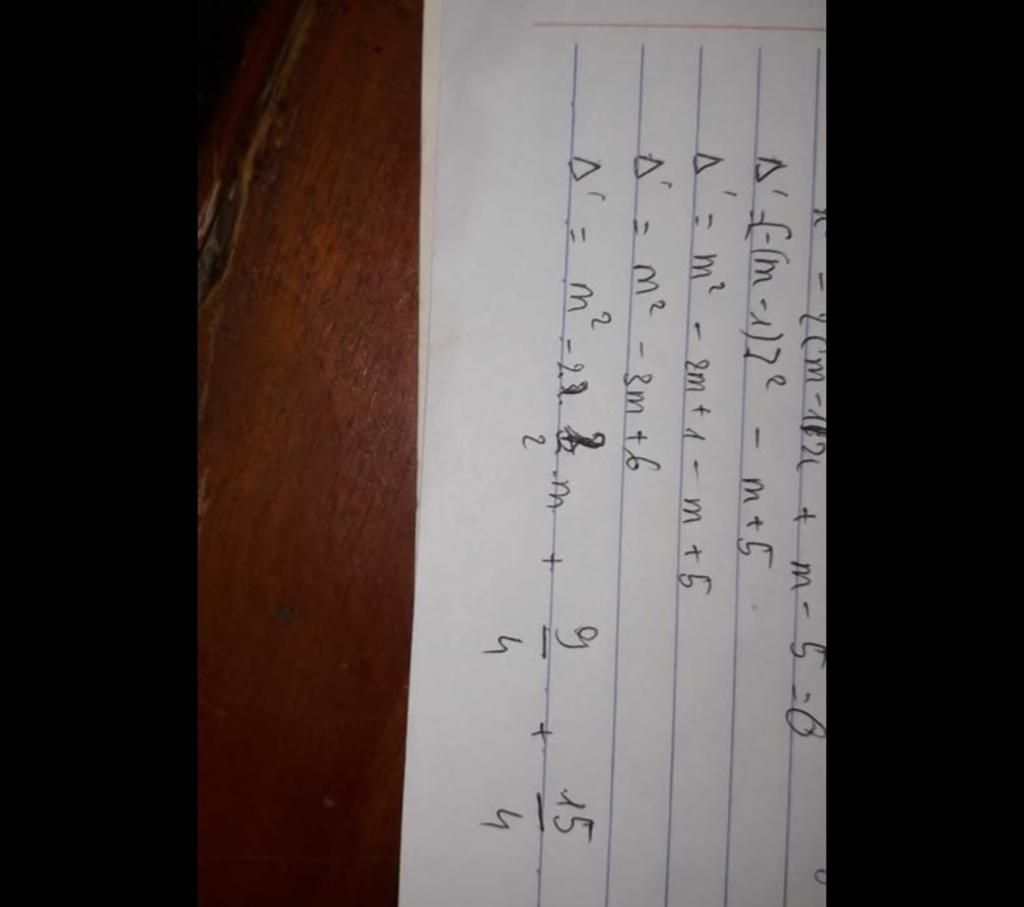 x² - 2(m-1)x + m - 5 = 0
Δ' = [-(m-1)]² - m+5
Δ' = m² - 2m + 1 - m + 5
Δ' = m² - 3m + 6
Δ' = m² - 2. 3/2 .m + 9/4 + 15/4